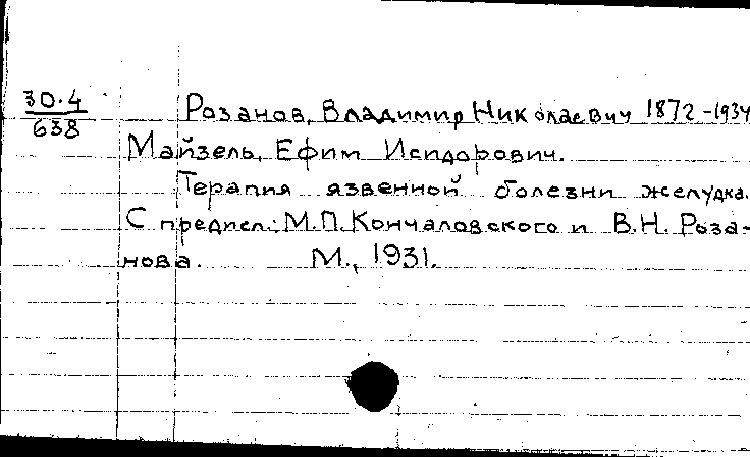 30.4
638
Розанов, Владимир Николаевич 1872-1934
Майзель, Ефим Исидорович.
Терапия язвенной болезни желудка.
С предисл.: М.П. Кончаловского и В.Н. Роза-
нова. М., 1931.